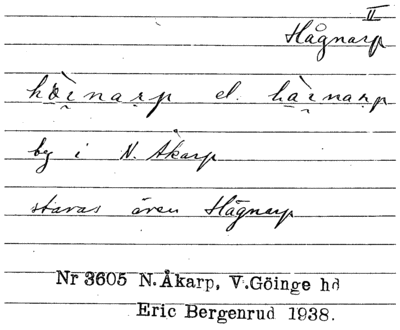 II
Hågnarp
hò̤i̯naṛp el. hà̤i̯naṛp
by i N. Åkarp
stavas även Hägnarp
Nr 3605 N.Åkarp, V.Göinge hd
Eric Bergenrud 1938.